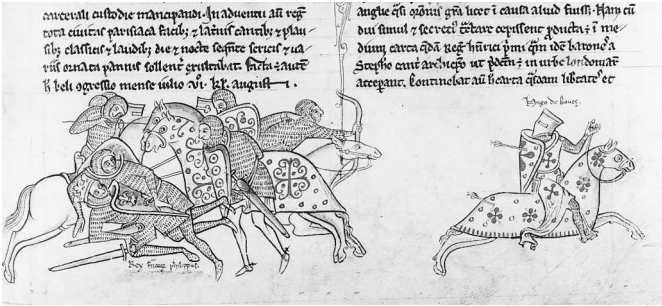 carcerali custodie mancipandi. In aduentu aū reg̃
tota ciuitas parisiaca facib; & lat'nis cantic̃ & plau
sib; classicis & laudib; die & nocte seq̃nte sericis & ua
riis ornata pannis sollenn̄ Facta ÷ autē
h̄ beli ɔgressio mense iulio .vi°. kł. augusti.
angłie q̃si or̄onis gr̄a licet ī causa aliud fuiss;. Nam cū
diu simul & secreci' t̃ctare cepissent producta ÷ ī me
dium carta q̃dā Reg̃ henrici p̃mi q̃m idē barones a
Stepħo cant̄ archiep̃o ut p̃dc̄m ÷ in urbe londoniar̃
acceperant. Continebat aū h̄ carta q̃sdam lib̃tates et
Hugo de boues.
Rex francie philippus.